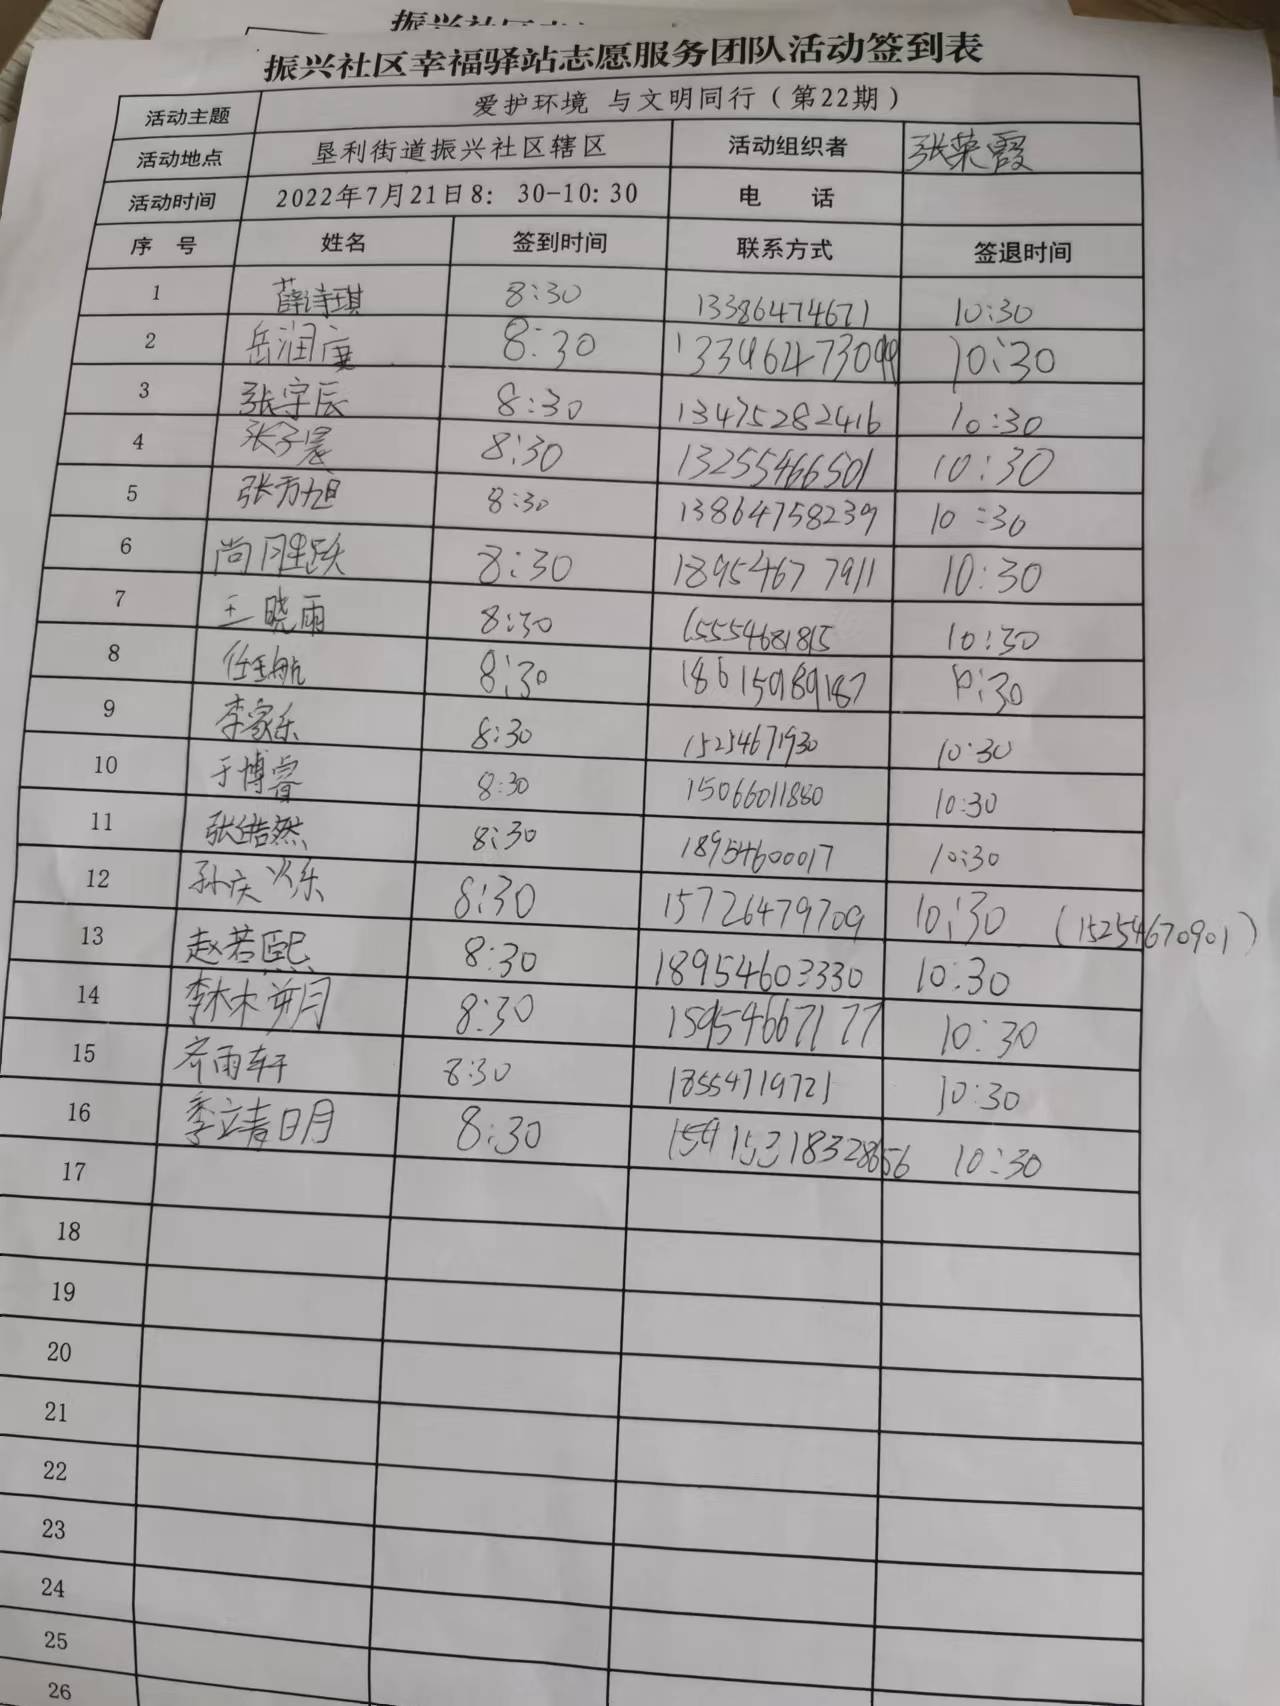 振兴社区幸福驿站志愿服务团队活动签到表
活动主题 爱护环境 与文明同行（第22期）
活动地点 垦利街道振兴社区辖区 活动组织者 张荣霞
活动时间 2022年7月21日8：30-10:30 电 话
序 号 姓名 签到时间 联系方式 签退时间
1 薛诗琪 8:30 13386474671 10:30
2 岳润 8:30 10:30
3 张宇辰 8:30 13475282416 10:30
4 张子晨 8:30 13255466501 10:30
5 张方旭 8:30 13864758239 10:30
6 尚胜跃 8:30 18954677911 10:30
7 王晓雨 8:30 15554681815 10:30
8 任玉航 8:30 18615989187 10:30
9 李家乐 8:30 15254671930 10:30
10 于博睿 8:30 15066011880 10:30
11 张皓然 8:30 18954600017 10:30
12 孙庆 乐 8:30 15726479709 10:30 (15254670901)
13 赵若熙 8:30 18954603330 10:30
14 李林朔 8:30 15954667177 10:30
15 齐雨轩 8:30 18554719721 10:30
16 季立青明 8:30 10:30
17
18
19
20
21
22
23
24
25
26